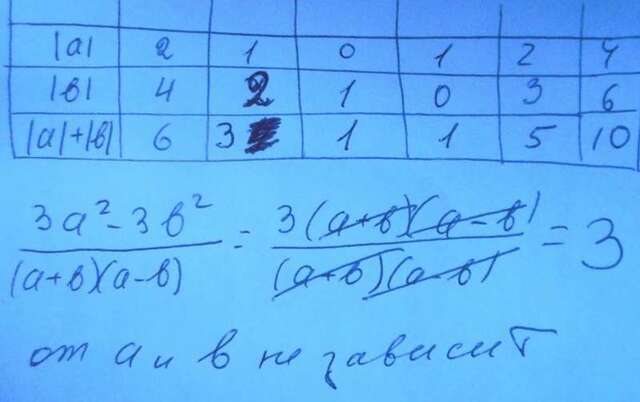 |a| 2 1 0 1 2 4
|в| 4 2 1 0 3 6
|a|+|в| 6 3 1 1 5 10
3a²-3в² / (a+в)(a-в) = 3(a+в)(a-в) / (a+в)(a-в) = 3
от a и в не зависит